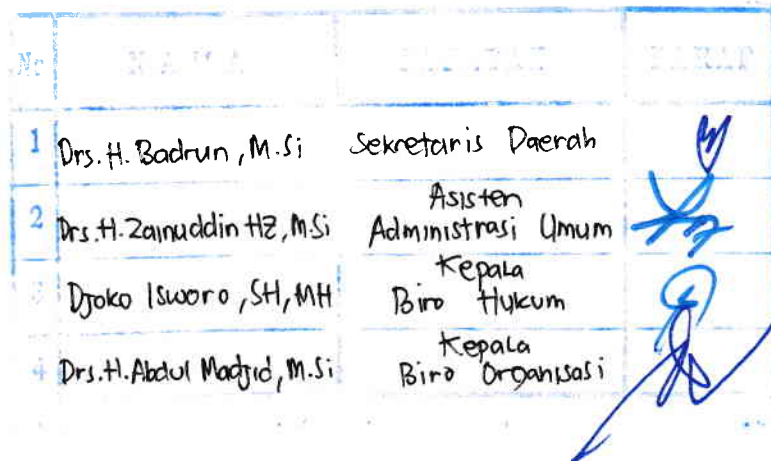 No
1 Drs. H. Badrun, M.Si Sekretaris Daerah
2 Drs. H. Zainuddin HZ, M.Si Asisten
Administrasi Umum
3 Djoko Isworo, SH, MH Kepala
Biro Hukum
4 Drs. H. Abdul Madjid, M.Si Kepala
Biro Organisasi